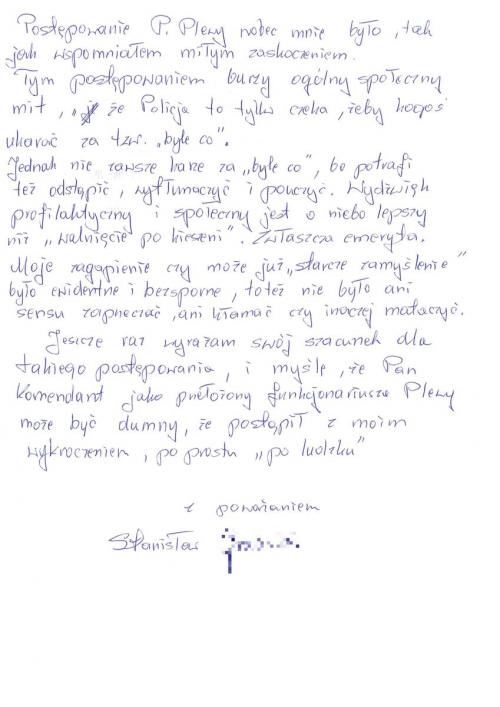 Postępowanie P. Plewy wobec mnie było, tak
jak wspomniałem miłym zaskoczeniem.
Tym postępowaniem burzy ogólny społeczny
mit, „że Policja to tylko czeka, żeby kogoś
ukarać za tzw. „byle co”.
Jednak nie zawsze karze za „byle co”, bo potrafi
też odstąpić, wytłumaczyć i pouczyć. Wydźwięk
profilaktyczny i społeczny jest o niebo lepszy
niż „walnięcie po kieszeni”. Zwłaszcza emeryta.
Moje zagapienie czy może już „starcze zamyślenie”
było ewidentne i bezsporne, toteż nie było ani
sensu zaprzeczać, ani kłamać czy inaczej mataczyć.
Jeszcze raz wyrażam swój szacunek dla
takiego postępowania, i myślę, że Pan
Komendant jako przełożony funkcjonariusza Plewy
może być dumny, że postąpił z moim
wykroczeniem, po prostu „po ludzku”
z poważaniem
Stanisław